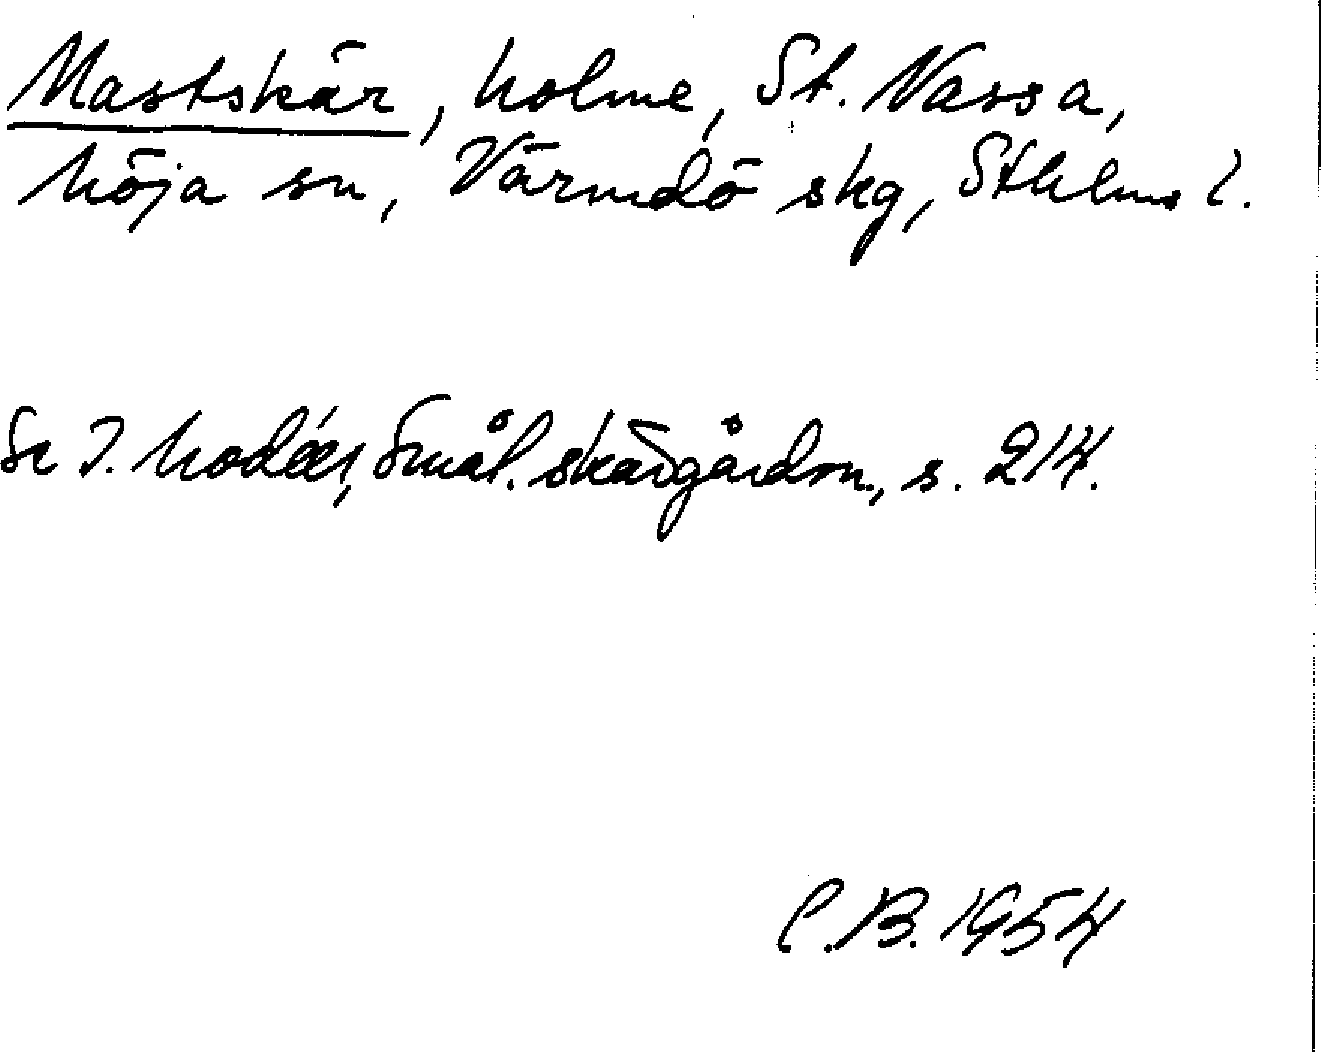 Mastskär, holme, St. Nassa,
Möja sn, Värmdö skg, Sthlms l.
Se I. Modéer, Smål. skärgårdsn., s. 214.
C.B. 1954